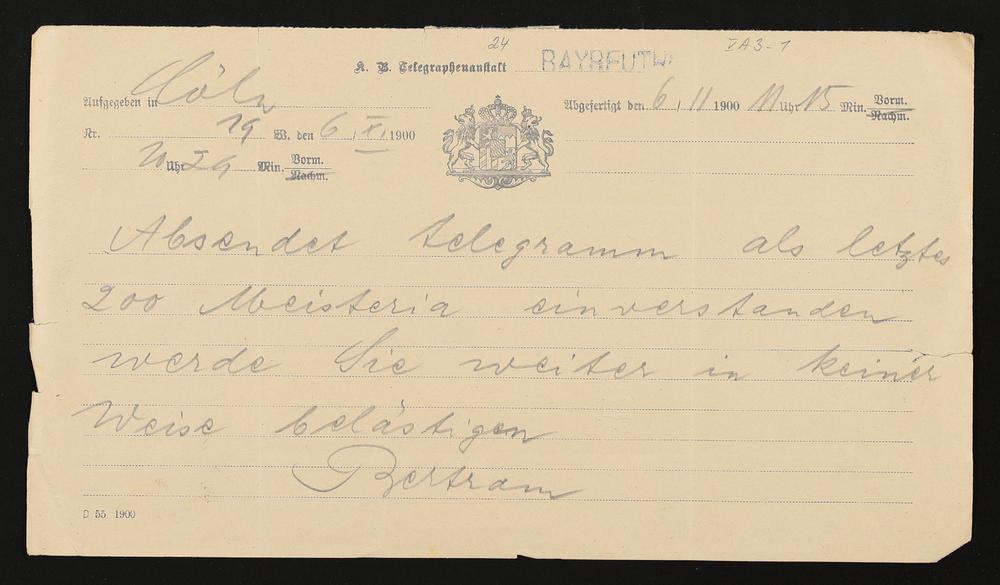 24
VA3-1
K. B. Telegraphenanstalt BAYREUTH
Aufgegeben in Cöln
Abgefertigt den 6. 11 1900 11 Uhr 15 Min. Vorm. Nachm.
Nr. 19 W. den 6. XI. 1900
10 Uhr Min. Vorm. Nachm.
Absendet telegramm als letztes
200 Meisteria einverstanden
werde Sie weiter in keiner
Weise belästigen
Bertram
D 55 1900